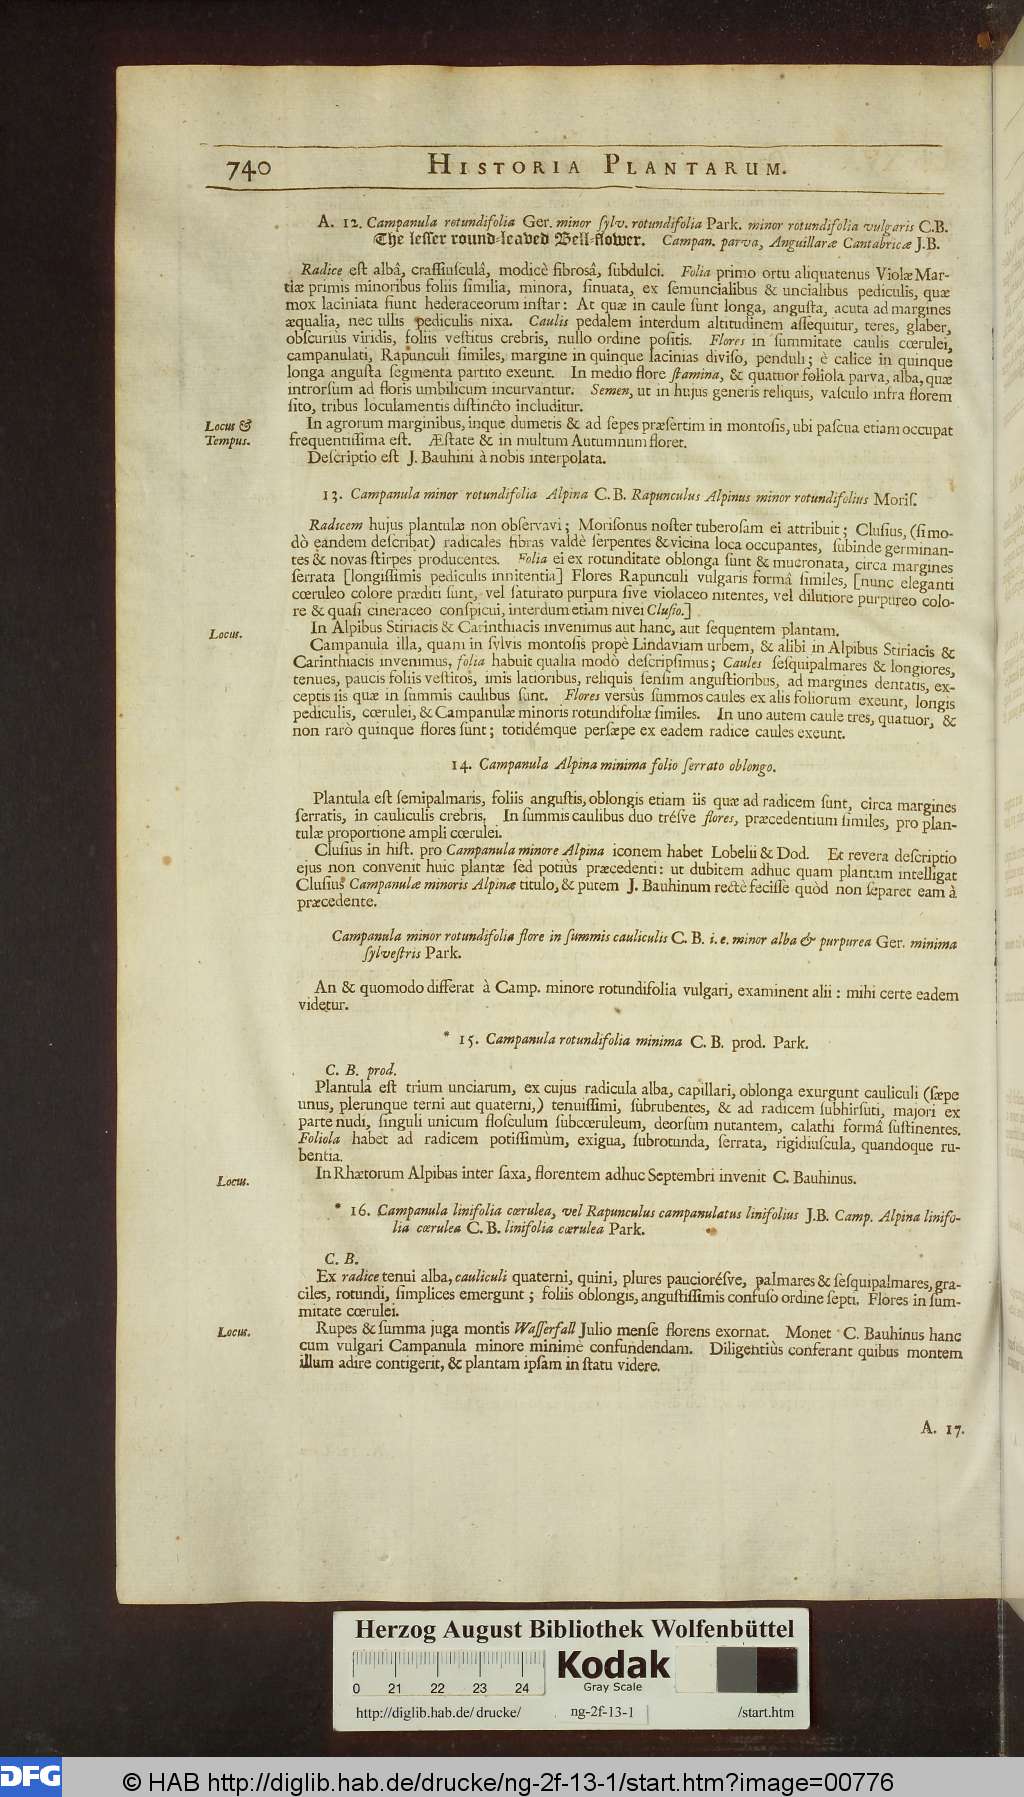 740
HISTORIA PLANTARUM.
A. 12. Campanula rotundifolia Ger. minor ſylv. rotundifolia Park. minor rotundifolia vulgaris C.B.
The leſſer round-leaved Bell-flower. Campan. parva, Anguillaræ Cantabricæ J.B.
Radice eſt albâ, craſſiuſculâ, modicè fibroſâ, ſubdulci. Folia primo ortu aliquatenus Violæ Mar-
tiæ primis minoribus foliis ſimilia, minora, ſinuata, ex ſemuncialibus & uncialibus pediculis, quæ
mox laciniata fiunt hederaceorum inſtar: At quæ in caule ſunt longa, anguſta, acuta ad margines
æqualia, nec ullis pediculis nixa. Caulis pedalem interdum altitudinem aſſequitur, teres, glaber,
obſcuriùs viridis, foliis veſtitus crebris, nullo ordine poſitis. Flores in ſummitate caulis cœrulei,
campanulati, Rapunculi ſimiles, margine in quinque lacinias diviſo, penduli; è calice in quinque
longa anguſta ſegmenta partito exeunt. In medio flore ſtamina, & quatuor foliola parva, alba, quæ
introrſum ad floris umbilicum incurvantur. Semen, ut in hujus generis reliquis, vaſculo infra florem
ſito, tribus loculamentis diſtincto includitur.
Locus &
Tempus.
In agrorum marginibus, inque dumetis & ad ſepes præſertim in montoſis, ubi paſcua etiam occupat
frequentiſſima eſt. Æſtate & in multum Autumnum floret.
Deſcriptio eſt J. Bauhini à nobis interpolata.
13. Campanula minor rotundifolia Alpina C. B. Rapunculus Alpinus minor rotundifolius Moriſ.
Radicem hujus plantulæ non obſervavi; Moriſonus noſter tuberoſam ei attribuit; Cluſius, (ſi mo-
dò eandem deſcribat) radicales fibras valdè ſerpentes & vicina loca occupantes, ſubinde germinan-
tes & novas ſtirpes producentes. Folia ei ex rotunditate oblonga ſunt & mucronata, circa margines
ſerrata [longiſſimis pediculis innitentia] Flores Rapunculi vulgaris formâ ſimiles, [nunc eleganti
cœruleo colore præditi ſunt, vel ſaturato purpura ſive violaceo nitentes, vel dilutiore purpureo colo-
re & quaſi cineraceo conſpicui, interdum etiam nivei Cluſio.]
Locus.
In Alpibus Stiriacis & Carinthiacis invenimus aut hanc, aut ſequentem plantam.
Campanula illa, quam in ſylvis montoſis propè Lindaviam urbem, & alibi in Alpibus Stiriacis &
Carinthiacis invenimus, folia habuit qualia modò deſcripſimus; Caules ſeſquipalmares & longiores,
tenues, paucis foliis veſtitos, imis latioribus, reliquis ſenſim anguſtioribus, ad margines dentatis, ex-
ceptis iis quæ in ſummis caulibus ſunt. Flores versùs ſummos caules ex alis foliorum exeunt, longis
pediculis, cœrulei, & Campanulæ minoris rotundifoliæ ſimiles. In uno autem caule tres, quatuor, &
non rarò quinque flores ſunt; totidémque perſæpe ex eadem radice caules exeunt.
14. Campanula Alpina minima folio ſerrato oblongo.
Plantula eſt ſemipalmaris, foliis anguſtis, oblongis etiam iis quæ ad radicem ſunt, circa margines
ſerratis, in cauliculis crebris. In ſummis caulibus duo tréſve flores, præcedentium ſimiles, pro plan-
tulæ proportione ampli cœrulei.
Cluſius in hiſt. pro Campanula minore Alpina iconem habet Lobelii & Dod. Et revera deſcriptio
ejus non convenit huic plantæ ſed potiùs præcedenti: ut dubitem adhuc quam plantam intelligat
Cluſius Campanulæ minoris Alpinæ titulo, & putem J. Bauhinum rectè feciſſe quòd non ſeparet eam à
præcedente.
Campanula minor rotundifolia flore in ſummis cauliculis C. B. i. e. minor alba & purpurea Ger. minima
ſylveſtris Park.
An & quomodo differat à Camp. minore rotundifolia vulgari, examinent alii: mihi certe eadem
videtur.
* 15. Campanula rotundifolia minima C. B. prod. Park.
C. B. prod.
Plantula eſt trium unciarum, ex cujus radicula alba, capillari, oblonga exurgunt cauliculi (ſæpe
unus, plerunque terni aut quaterni,) tenuiſſimi, ſubrubentes, & ad radicem ſubhirſuti, majori ex
parte nudi, ſinguli unicum floſculum ſubcœruleum, deorſum nutantem, calathi formâ ſuſtinentes.
Foliola habet ad radicem potiſſimùm, exigua, ſubrotunda, ſerrata, rigidiuſcula, quandoque ru-
bentia.
Locus.
In Rhætorum Alpibus inter ſaxa, florentem adhuc Septembri invenit C. Bauhinus.
* 16. Campanula linifolia cærulea, vel Rapunculus campanulatus linifolius J.B. Camp. Alpina linifo-
lia cærulea C. B. linifolia cærulea Park.
C. B.
Ex radice tenui alba, cauliculi quaterni, quini, plures paucioréſve, palmares & ſeſquipalmares, gra-
ciles, rotundi, ſimplices emergunt; foliis oblongis, anguſtiſſimis confuſo ordine ſepti. Flores in ſum-
mitate cœrulei.
Locus.
Rupes & ſumma juga montis Waſſerfall Julio menſe florens exornat. Monet C. Bauhinus hanc
cum vulgari Campanula minore minimè confundendam. Diligentiùs conferant quibus montem
illum adire contigerit, & plantam ipſam in ſtatu videre.
A. 17.
Herzog August Bibliothek Wolfenbüttel
Kodak
Gray Scale
0 21 22 23 24
http://diglib.hab.de/drucke/ ng-2f-13-1 /start.htm
DFG
© HAB http://diglib.hab.de/drucke/ng-2f-13-1/start.htm?image=00776